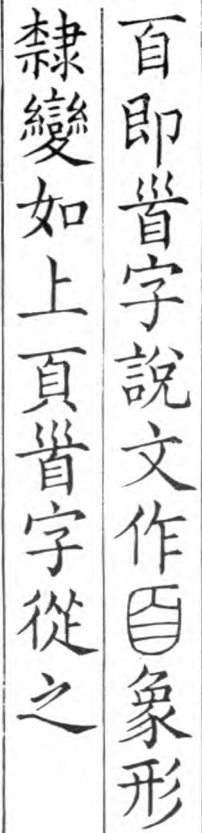 𦣻即𩠐字說文作𦣻象形
隸變如上頁𩠐字從之